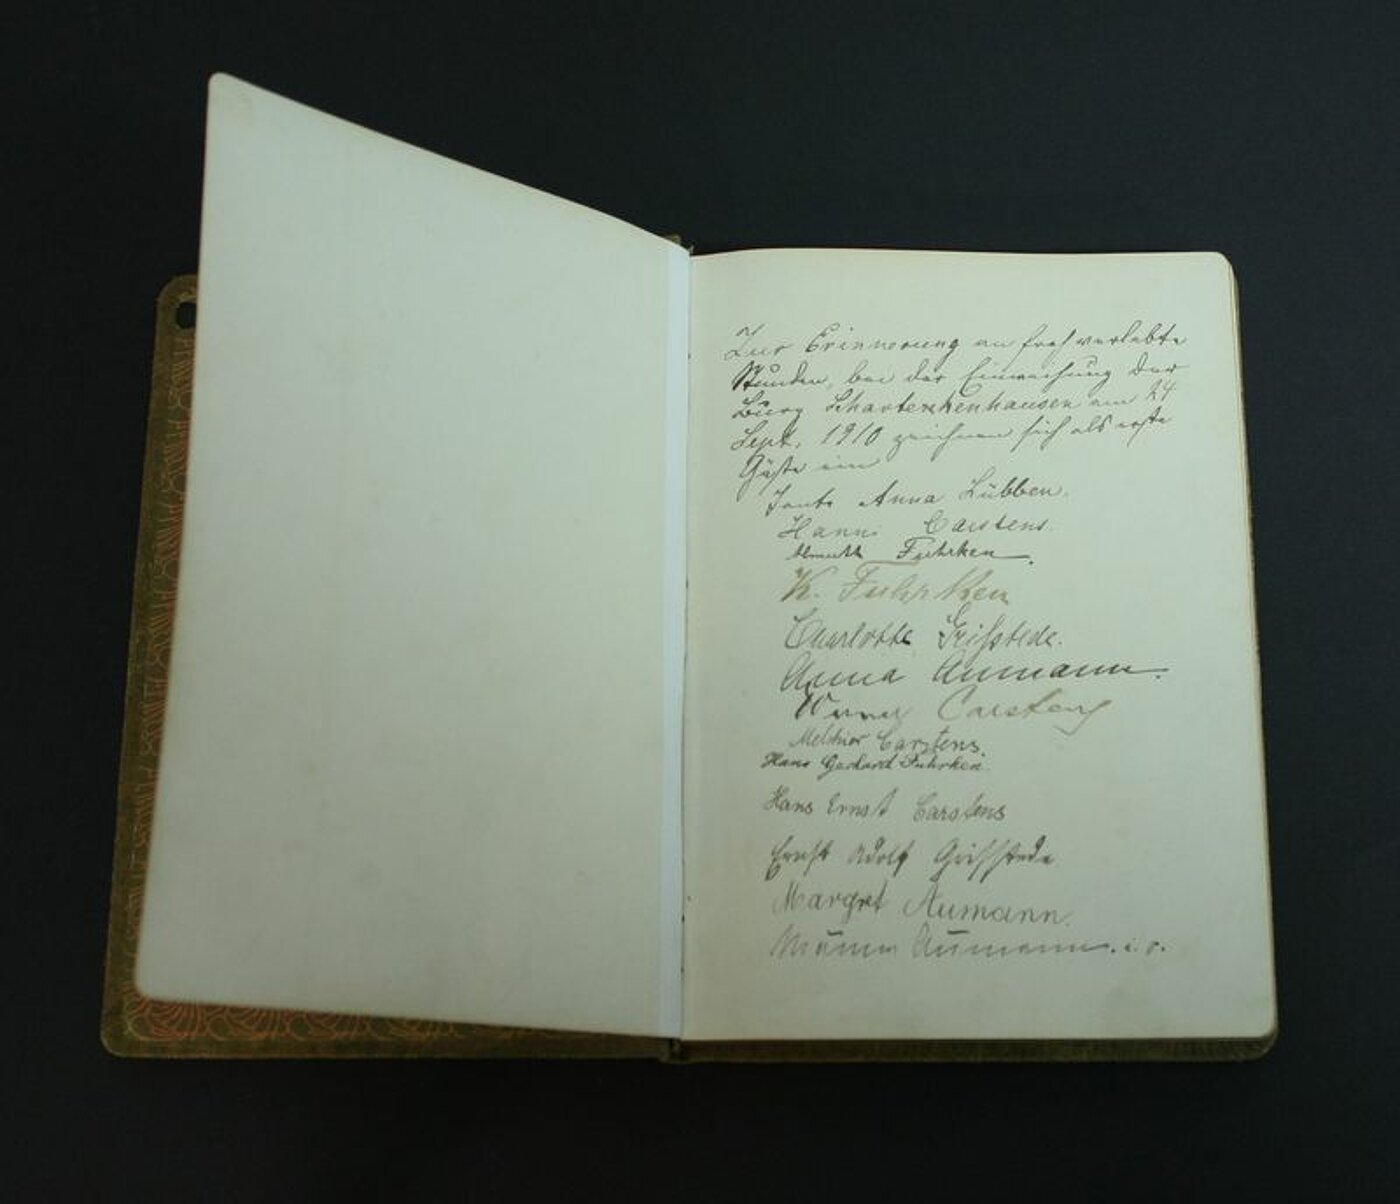 Zur Erinnerung an froh verlebte
Stunden, bei der Einweihung der
Burg Schartenhausen am 24
Sept. 1910 zeichnen sich als erste
Gäste ein
Tante Anna Lübben.
Hanni Carstens.
Fuhrken.
K. Fuhrken
Charlotte Grifstede.
Anna Aumann.
Werner Carstens
Melchior Carstens.
Hans Gerhard Fuhrken.
Hans Ernst Carstens
Ernst Adolf Griffstede
Margret Aumann.
Aumann.